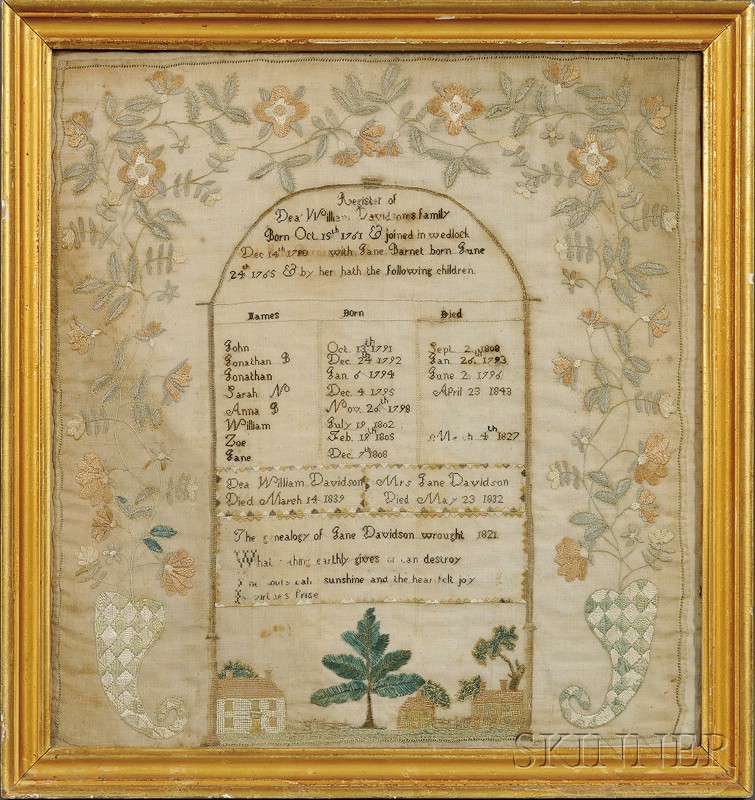 Register of
Dea William Davidsons family
Born Oct. 15th 1761 & joined in wedlock
Dec 14th with Jane Barnet born June
24th 1765 & by her hath the following children.
Names Born Died
John Oct. 13th 1791 Sept. 2. 1808
Jonathan B Dec. 24th 1792 Jan. 26th 1793
Jonathan Jan 6 1794 June 2. 1796
Sarah N Dec. 4. 1795 April 23 1843
Anna B Nov. 26th 1798
William July 19 1802
Zoe Feb. 19th 1805 March 4th 1827
Jane Dec. 7th 1808
Dea William Davidson Mrs Jane Davidson
Died March 14 1839 Died May 23 1832
The genealogy of Jane Davidson wrought 1821
What nothing earthly gives or can destroy
sunshine and the heartfelt joy
virtues
SKINNER